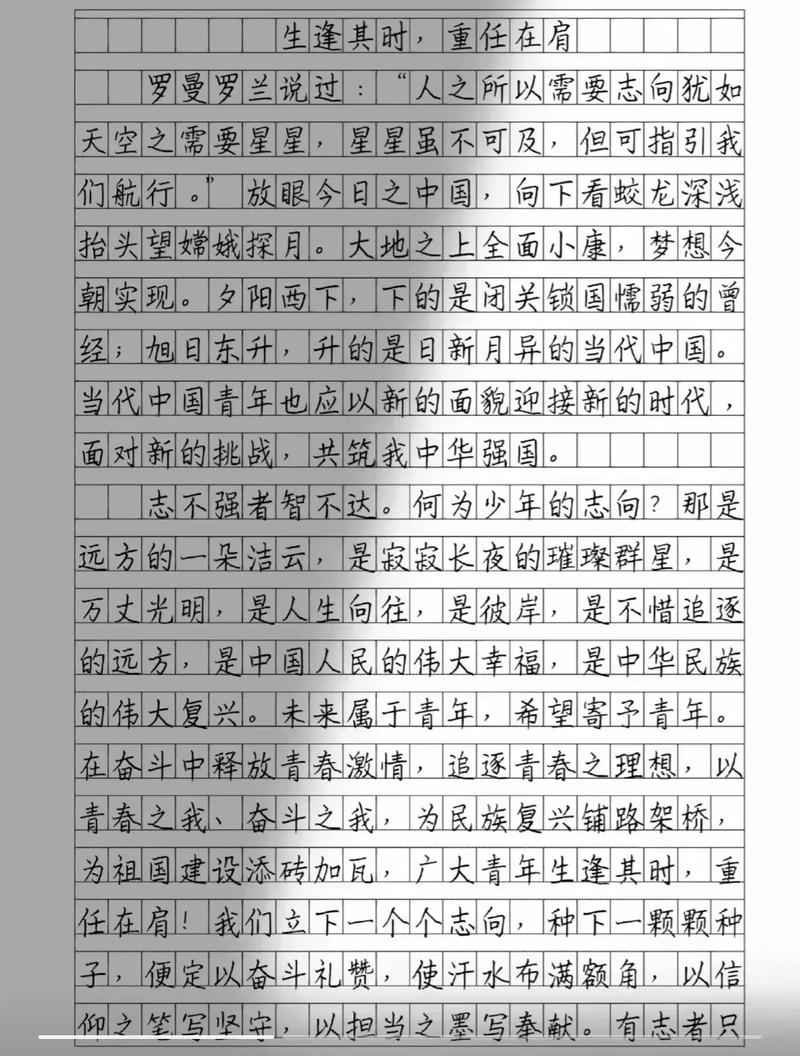 生逢其时，重任在肩
罗曼罗兰说过：“人之所以需要志向犹如
天空之需要星星，星星虽不可及，但可指引我
们航行。”放眼今日之中国，向下看蛟龙深浅
抬头望嫦娥探月。大地之上全面小康，梦想今
朝实现。夕阳西下，下的是闭关锁国懦弱的曾
经；旭日东升，升的是日新月异的当代中国。
当代中国青年也应以新的面貌迎接新的时代，
面对新的挑战，共筑我中华强国。
志不强者智不达。何为少年的志向？那是
远方的一朵洁云，是寂寂长夜的璀璨群星，是
万丈光明，是人生向往，是彼岸，是不惜追逐
的远方，是中国人民的伟大幸福，是中华民族
的伟大复兴。未来属于青年，希望寄予青年。
在奋斗中释放青春激情，追逐青春之理想，以
青春之我、奋斗之我，为民族复兴铺路架桥，
为祖国建设添砖加瓦，广大青年生逢其时，重
任在肩！我们立下一个个志向，种下一颗颗种
子，便定以奋斗礼赞，使汗水布满额角，以信
仰之笔写坚守，以担当之墨写奉献。有志者只